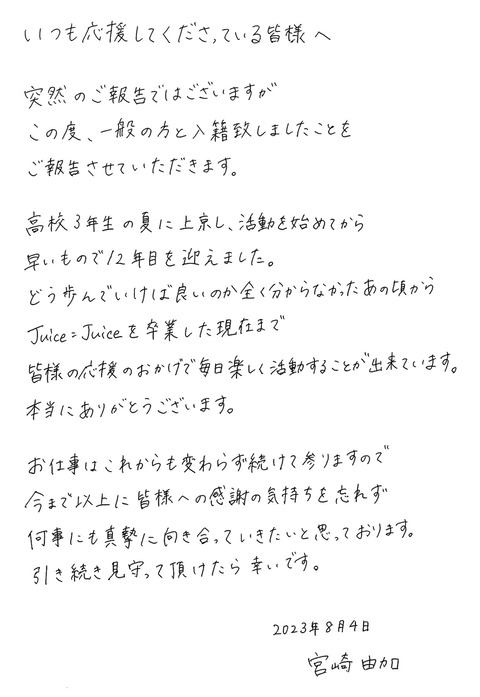 いつも応援してくださっている皆様へ
突然のご報告ではございますが
この度、一般の方と入籍致しましたことを
ご報告させていただきます。
高校3年生の夏に上京し、活動を始めてから
早いもので12年目を迎えました。
どう歩んでいけば良いのか全く分からなかったあの頃から
Juice=Juiceを卒業した現在まで
皆様の応援のおかげで毎日楽しく活動することが出来ています。
本当にありがとうございます。
お仕事はこれからも変わらず続けて参りますので
今まで以上に皆様への感謝の気持ちを忘れず
何事にも真摯に向き合っていきたいと思っております。
引き続き見守って頂けたら幸いです。
2023年8月4日
宮崎由加